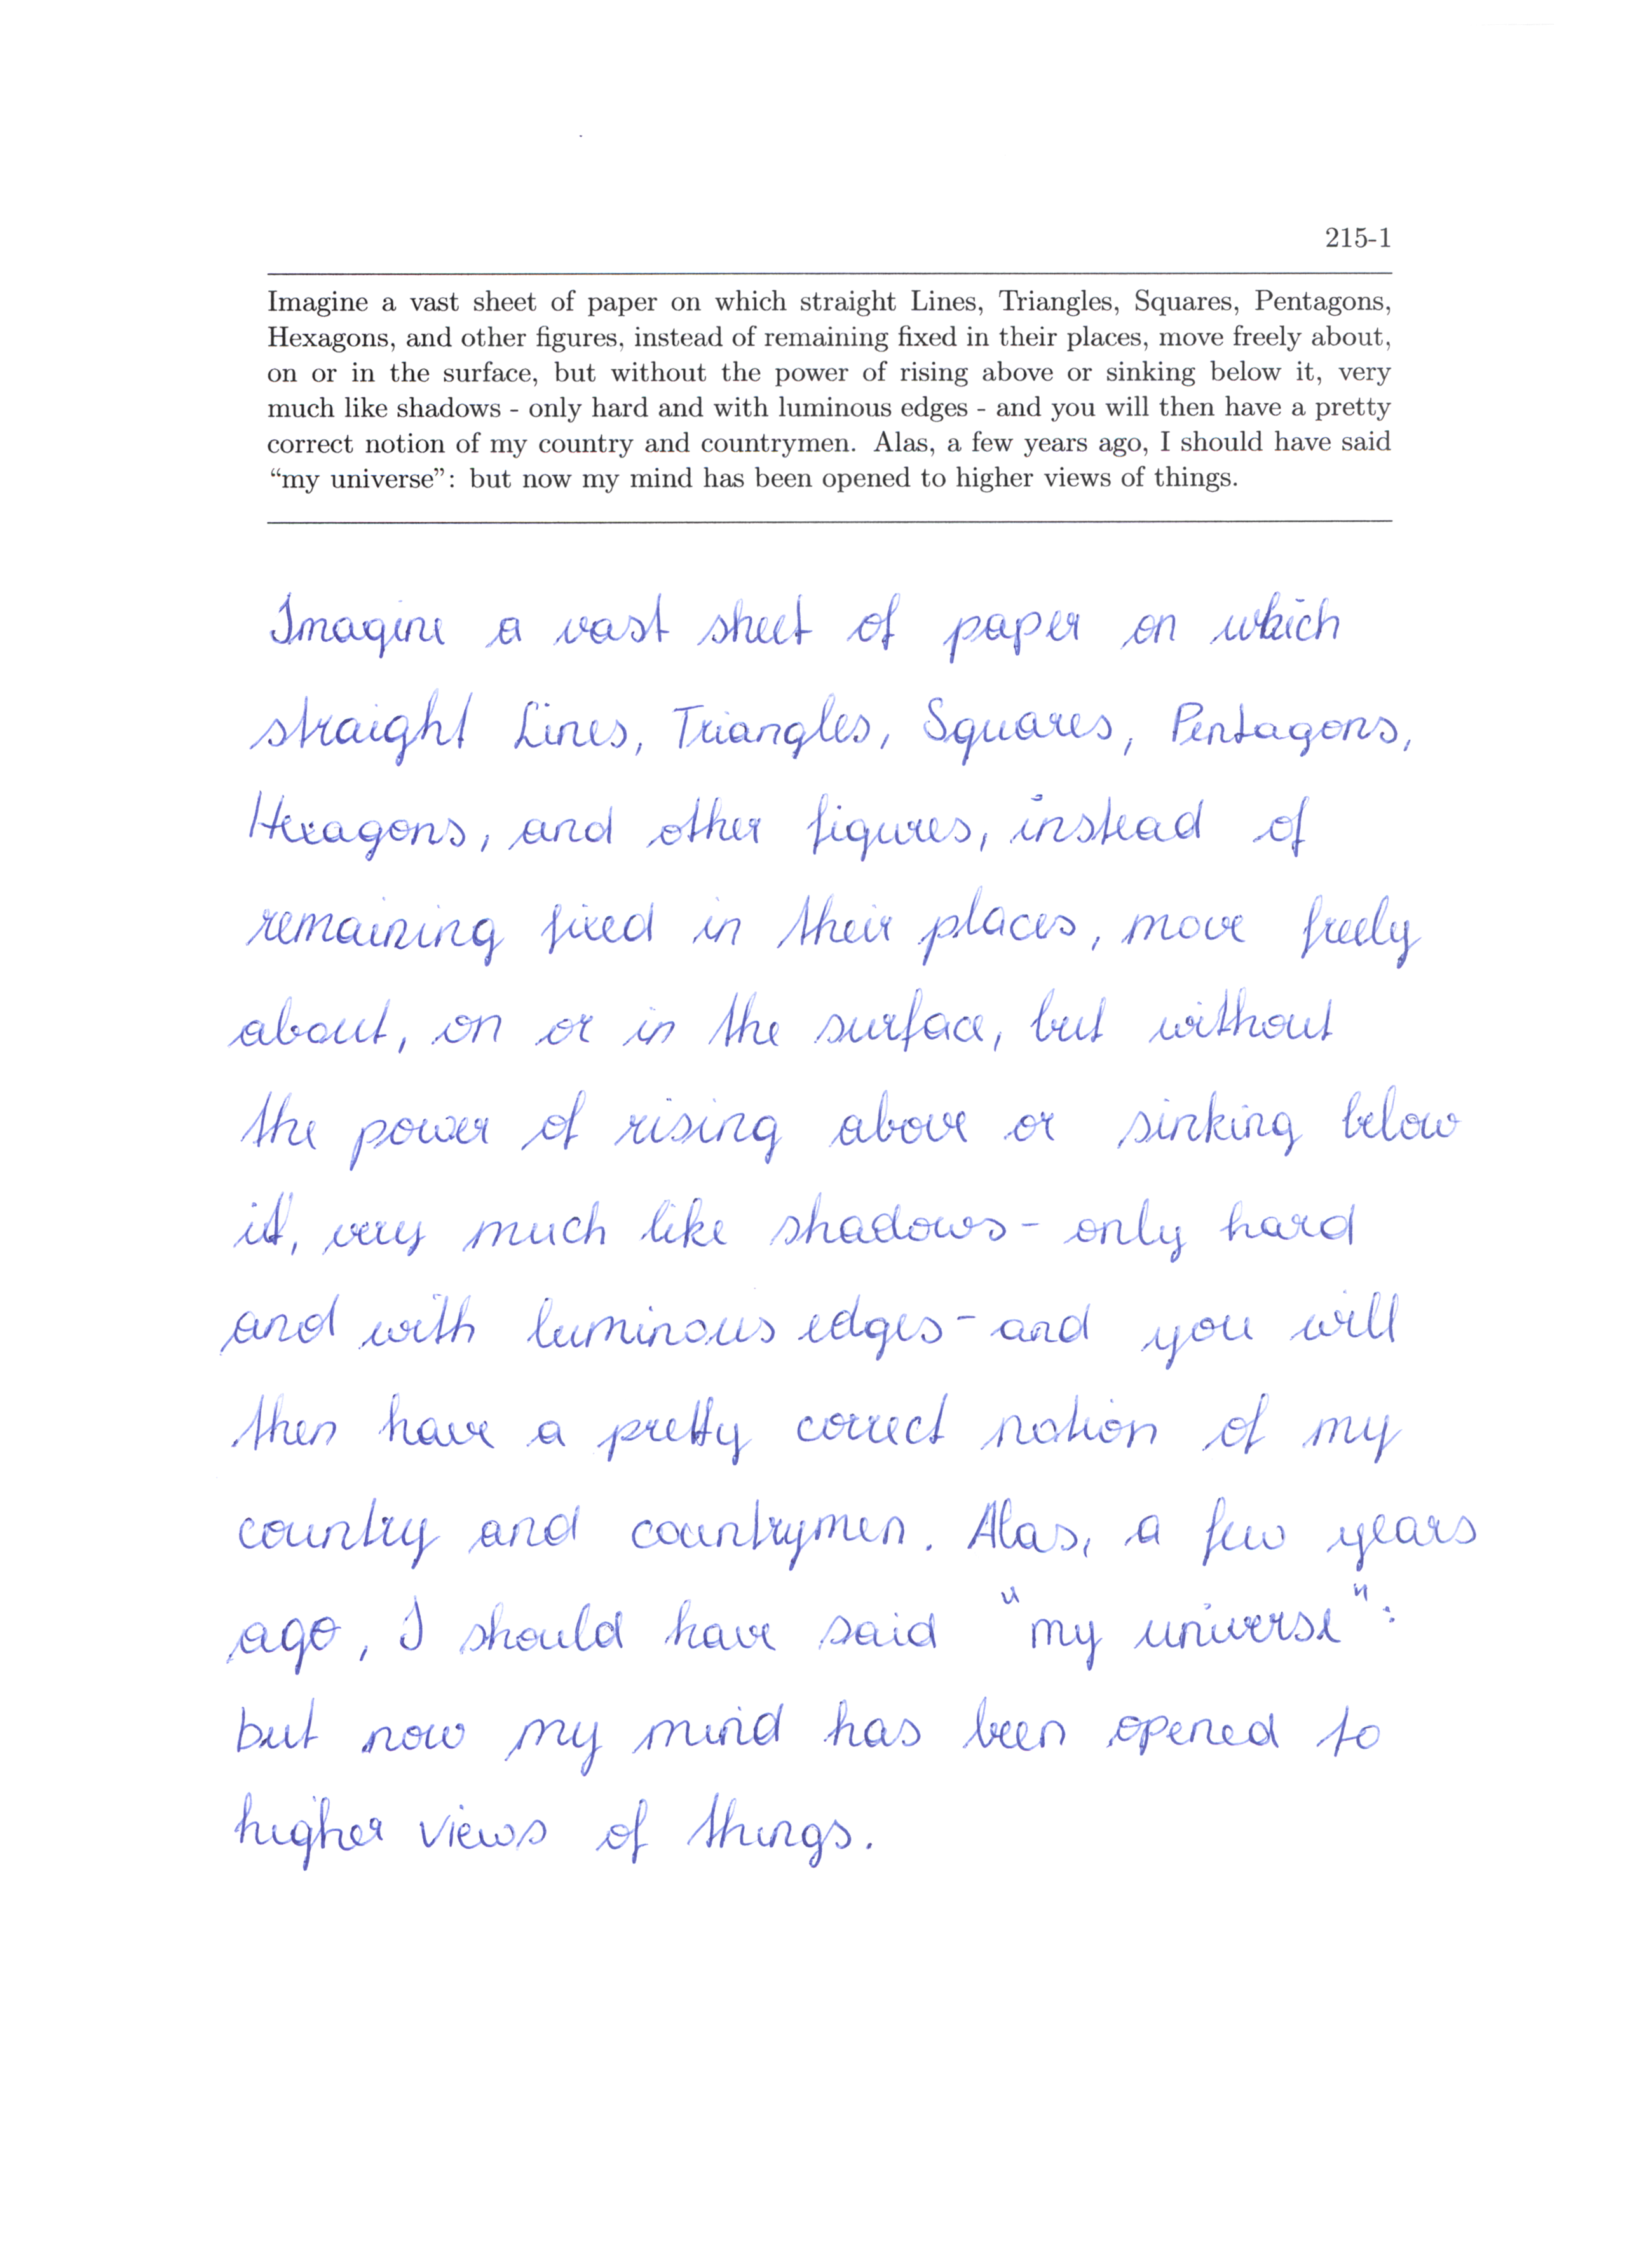 215-1
Imagine a vast sheet of paper on which straight Lines, Triangles, Squares, Pentagons,
Hexagons, and other figures, instead of remaining fixed in their places, move freely about,
on or in the surface, but without the power of rising above or sinking below it, very
much like shadows - only hard and with luminous edges - and you will then have a pretty
correct notion of my country and countrymen. Alas, a few years ago, I should have said
“my universe”: but now my mind has been opened to higher views of things.
Imagine a vast sheet of paper on which
straight Lines, Triangles, Squares, Pentagons,
Hexagons, and other figures, instead of
remaining fixed in their places, move freely
about, on or in the surface, but without
the power of rising above or sinking below
it, very much like shadows - only hard
and with luminous edges - and you will
then have a pretty correct notion of my
country and countrymen. Alas, a few years
ago, I should have said "my universe":
but now my mind has been opened to
higher views of things.